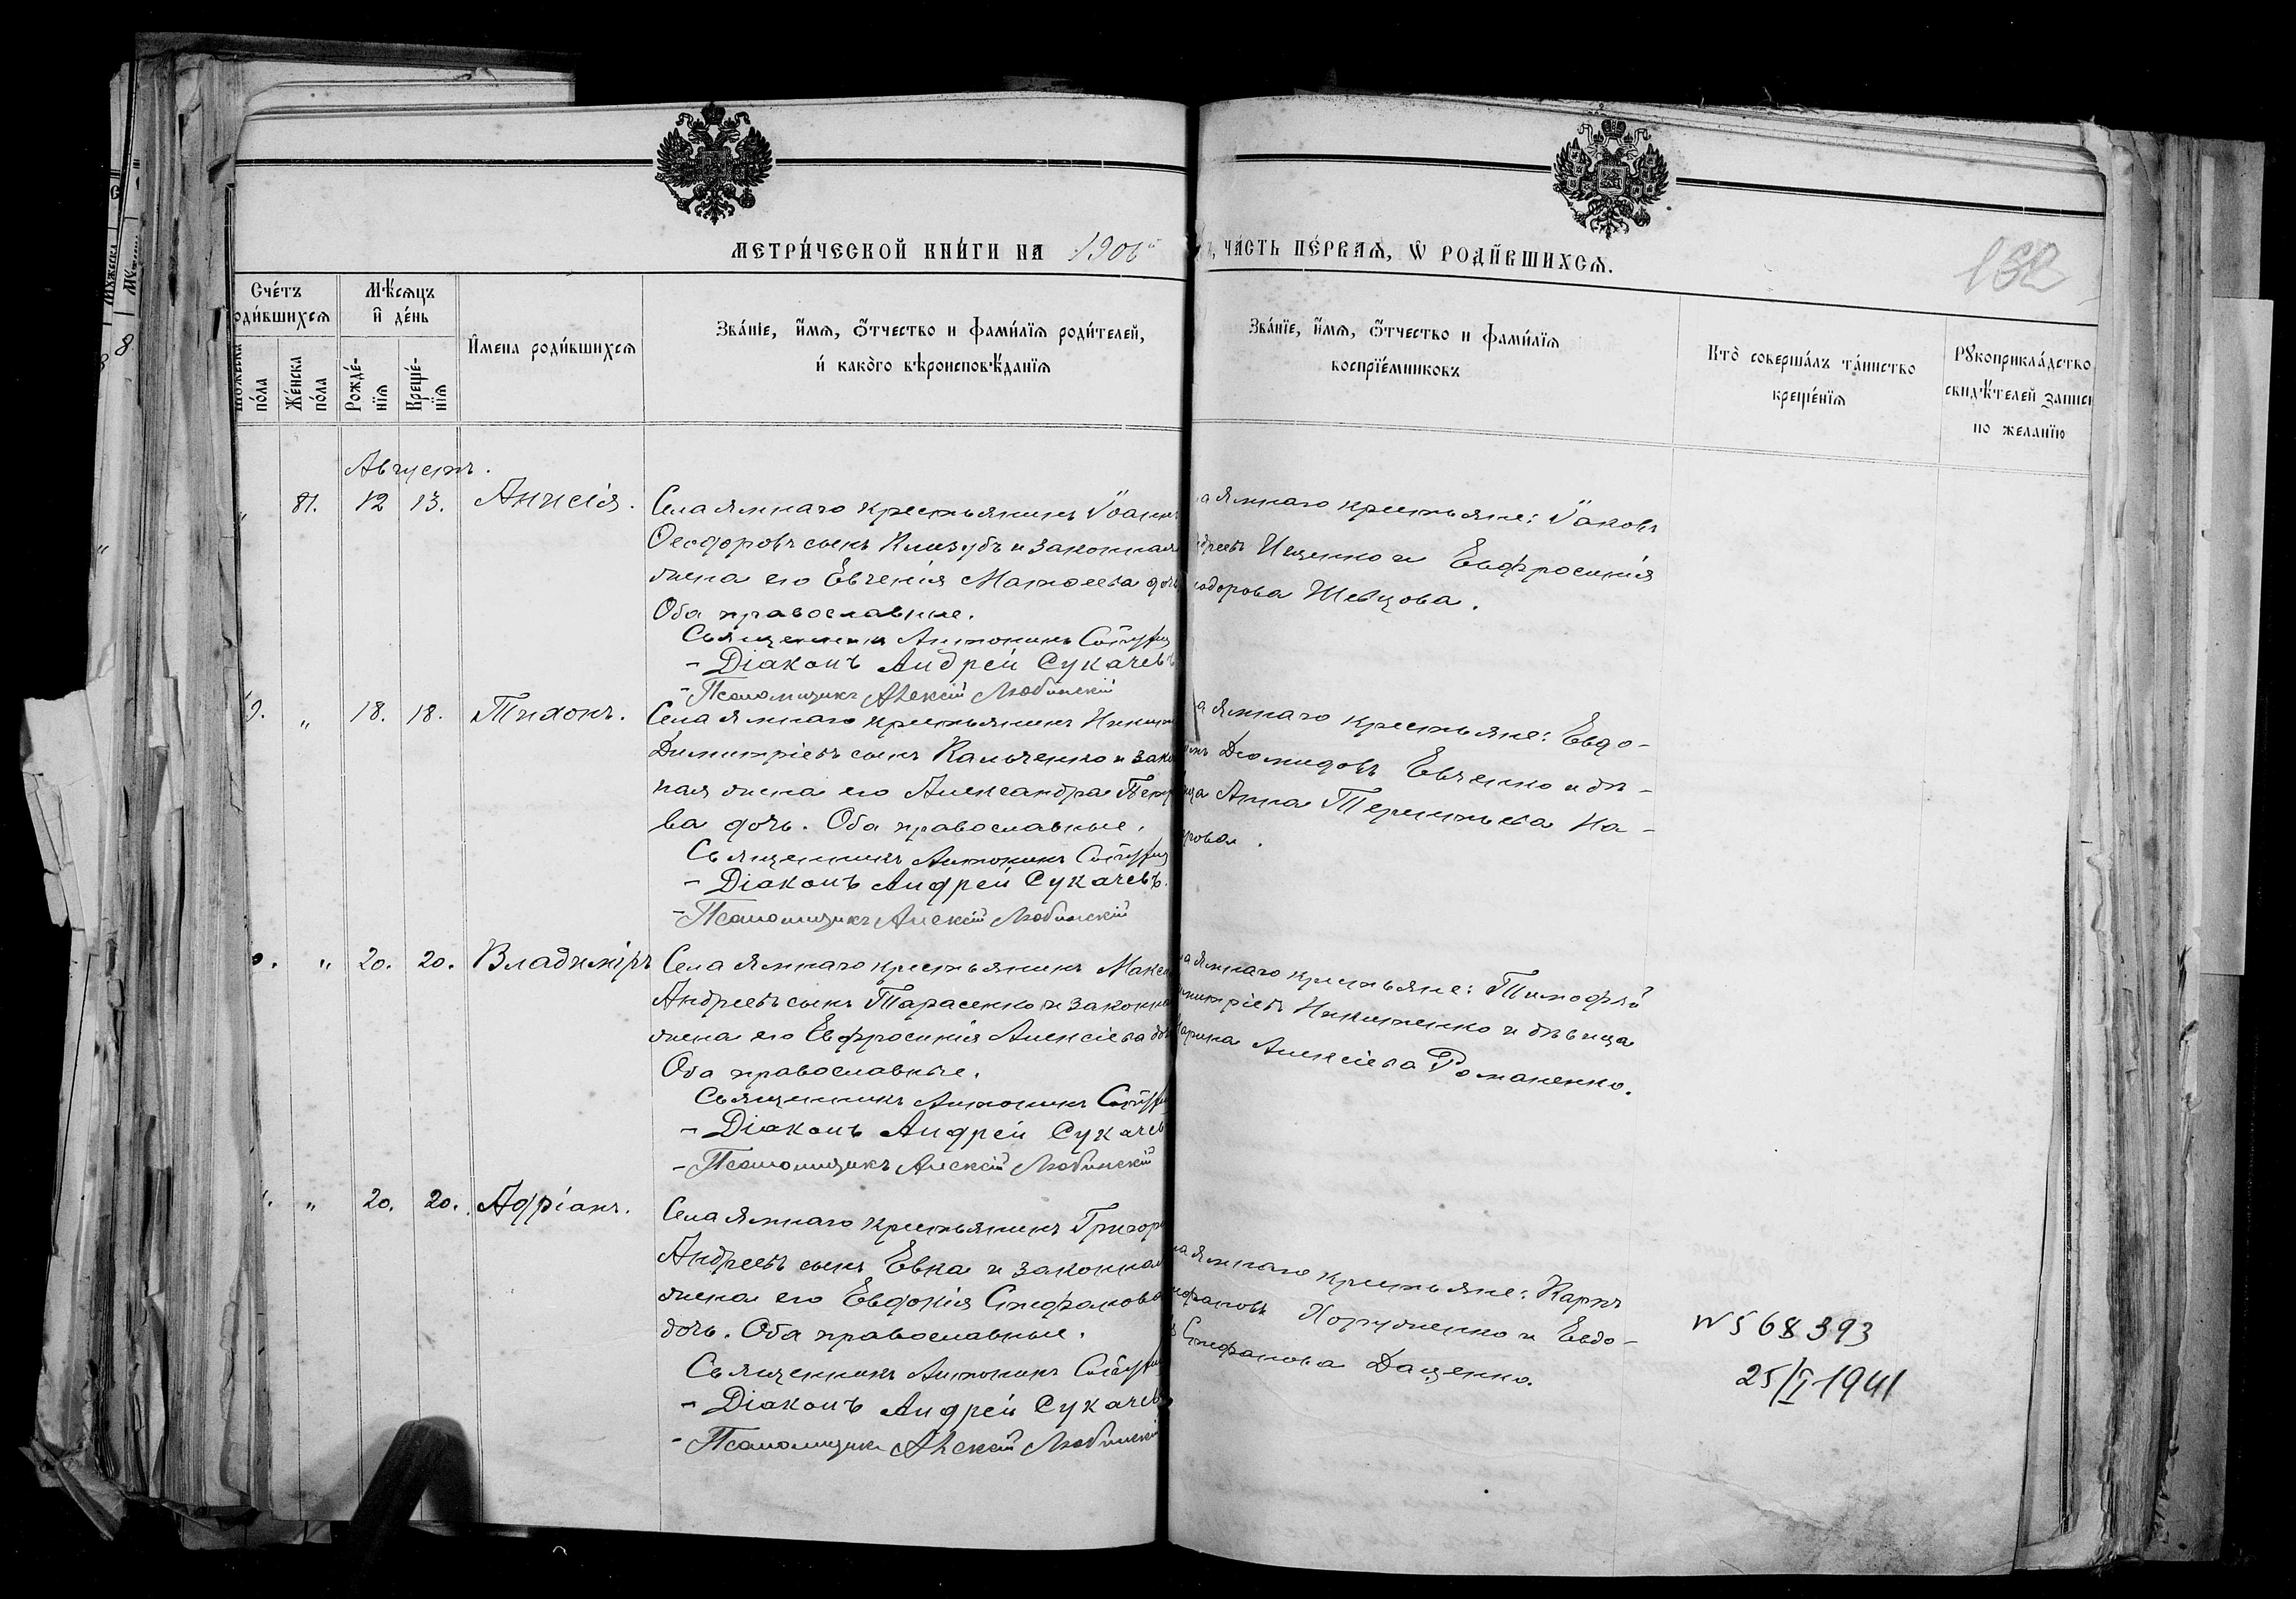 МЕТРИ́ЧЕСКОЙ КНИ́ГИ НА 1906
ЧА́СТЬ ПЕ́РВАѦ, Ѡ РОДИ́ВШИХСѦ.
132
Сче́тъ
оди́вшихсѧ
Мѣ́сѧцъ
и҆ де́нь
И҆мена роди́вшихсѧ
Зва́нїе, и҆́мѧ, ѻ҆́тчество и фами́лїѧ роди́телей,
и҆ како́го вѣроисповѣ́данїѧ
по́ла
Же́нска
по́ла
Рожде́-
нїѧ
Креще́-
нїѧ
Зва́нїе, и҆́мѧ, ѻ҆́тчество и фами́лїѧ
воспрїе́мниковъ
Кто̀ соверша́лъ та́инство
креще́нїѧ
Рꙋкоприкла́дство
свидѣ́телей запис
по жела́нїю
Августъ.
„ 81. 12 13. Анисія.
Села Ямнаго крестьянинъ Іоаннъ
Ѳеодоровъ сынъ Клизубъ и законная
жена его Евгенія Матѳеева дочь.
Оба православные.
Священникъ Антонинъ
- Діаконъ Андрей Сукачевъ
- Псаломщикъ Алексій Любинскій
а Ямнаго крестьяне: Іаковъ
дреевъ Ищенко и Евфросинія
одорова Шевцова.
9. „ 18. 18. Тихонъ.
Села Ямнаго крестьянинъ Никит
Димитріевъ сынъ Кальченко и зако
ная жена его Александра Петр
ва дочь. Оба православные.
Священникъ Антонинъ
- Діаконъ Андрей Сукачевъ.
- Псаломщикъ Алексій Любинскій
а Ямнаго крестьяне: Евдо-
Діомидовъ Евченко и дѣ-
ца Анна Терентьева На-
рова.
0. „ 20. 20. Владиміръ
Села Ямнаго крестьянинъ Макс
Андреевъ сынъ Тарасенко и законна
жена его Евфросинія Алексіева до
Оба православные.
Священникъ Антонинъ
- Діаконъ Андрей Сукачев
- Псаломщикъ Алексій Любинскій
а Ямнаго крестьяне: Тимофей
митріевъ Никитенко и дѣвица
арина Алексіева Романенко.
„ 20. 20. Адріанъ.
Села Ямнаго крестьянинъ Григор
Андреевъ сынъ Евка и законная
жена его Евдокія Стефанова
дочь. Оба православные.
Священникъ Антонинъ
- Діаконъ Андрей Сукачев
- Псаломщикъ Алексій Любинскі
а Ямнаго крестьяне: Карпъ
ефановъ Хоруженко и Евдо-
Стефанова Даценко.
N 568393
25/I 1941